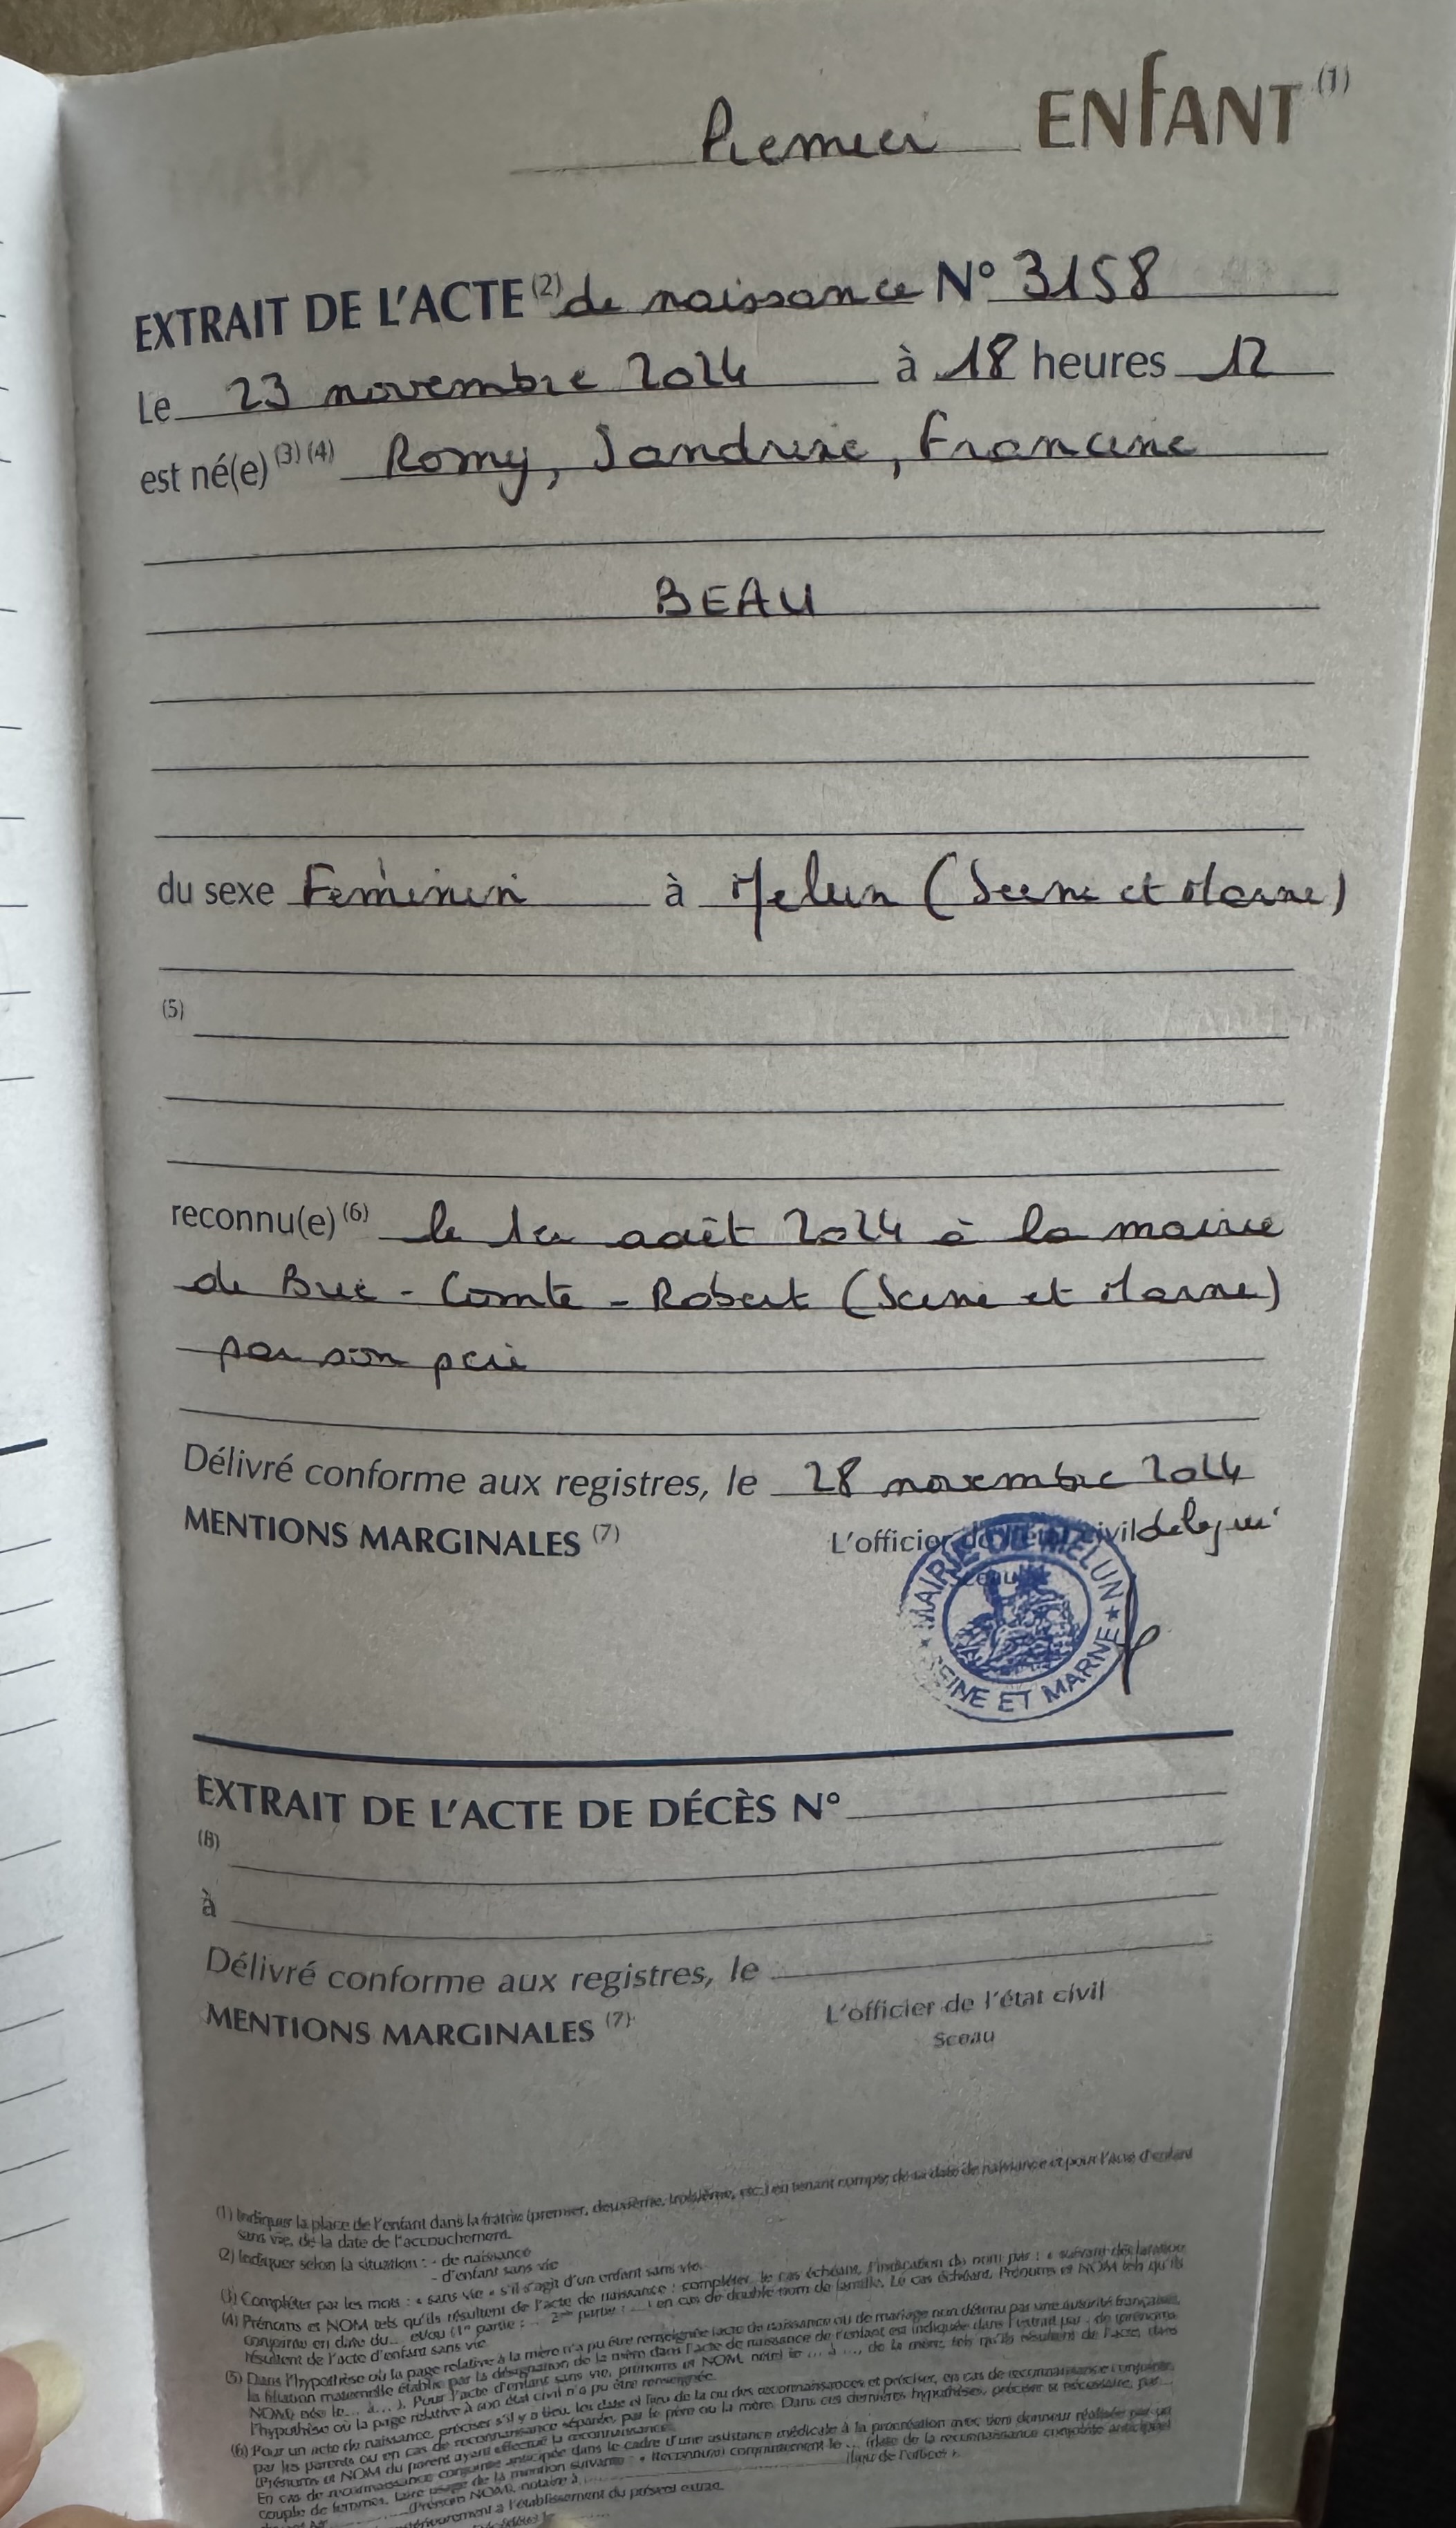 Premier ENFANT (1)
EXTRAIT DE L'ACTE (2) de naissance N° 3158
Le 23 novembre 2024 à 18 heures 12
est né(e) (3) (4) Romy, Sandrine, Francine
BEAU
du sexe Féminin à Melun (Seine et Marne)
(5)
reconnu(e) (6) le 1er août 2024 à la mairie
de Brie - Comte - Robert (Seine et Marne)
par son père
Délivré conforme aux registres, le 28 novembre 2024
MENTIONS MARGINALES (7) L'officier de l'état civil délégué
Sceau
MAIRIE DE MELUN
SEINE ET MARNE
EXTRAIT DE L'ACTE DE DÉCÈS N°
(8)
à
Délivré conforme aux registres, le
MENTIONS MARGINALES (7) L'officier de l'état civil
Sceau
(1) Indiquer la place de l'enfant dans la fratrie (premier, deuxième, troisième, etc.) en tenant compte de sa date de naissance et pour l'acte d'enfant
sans vie, de la date de l'accouchement.
(2) Indiquer selon la situation : - de naissance
- d'enfant sans vie
(3) Compléter par les mots : « sans vie » s'il s'agit d'un enfant sans vie.
(4) Prénoms et NOM tels qu'ils résultent de l'acte de naissance : compléter, le cas échéant, l'indication du nom par : « suivant déclaration
conjointe en date du... et/ou (1re partie : ... 2nde partie : ...) en cas de double nom de famille. Le cas échéant, Prénoms et NOM tels qu'ils
résultent de l'acte d'enfant sans vie.
(5) Dans l'hypothèse où la page relative à la mère n'a pu être renseignée (acte de naissance ou de mariage non détenu par une autorité française,
la filiation maternelle établie par la désignation de la mère dans l'acte de naissance de l'enfant est indiquée dans l'extrait par : de (prénoms
NOM) née le... à... ). Pour l'acte d'enfant sans vie, prénoms et NOM, né(e) le ... à ..., de la mère, tels qu'ils résultent de l'acte, dans
l'hypothèse où la page relative à son état civil n'a pu être renseignée.
(6) Pour un acte de naissance, préciser s'il y a lieu, les date et lieu de la ou des reconnaissances et préciser, en cas de reconnaissance conjointe,
par les parents ou en cas de reconnaissance séparée, par le père ou la mère. Dans ces dernières hypothèses, préciser si nécessaire, par...
(Prénoms et NOM du parent ayant effectué la reconnaissance).
En cas de reconnaissance conjointe anticipée dans le cadre d'une assistance médicale à la procréation avec tiers donneur réalisée par un
couple de femmes, faire usage de la mention suivante : « Reconnu(e) conjointement le ... (date de la reconnaissance conjointe anticipée)
(Prénom NOM), notaire à (lieu de l'office) ».
à l'établissement du présent extrait.